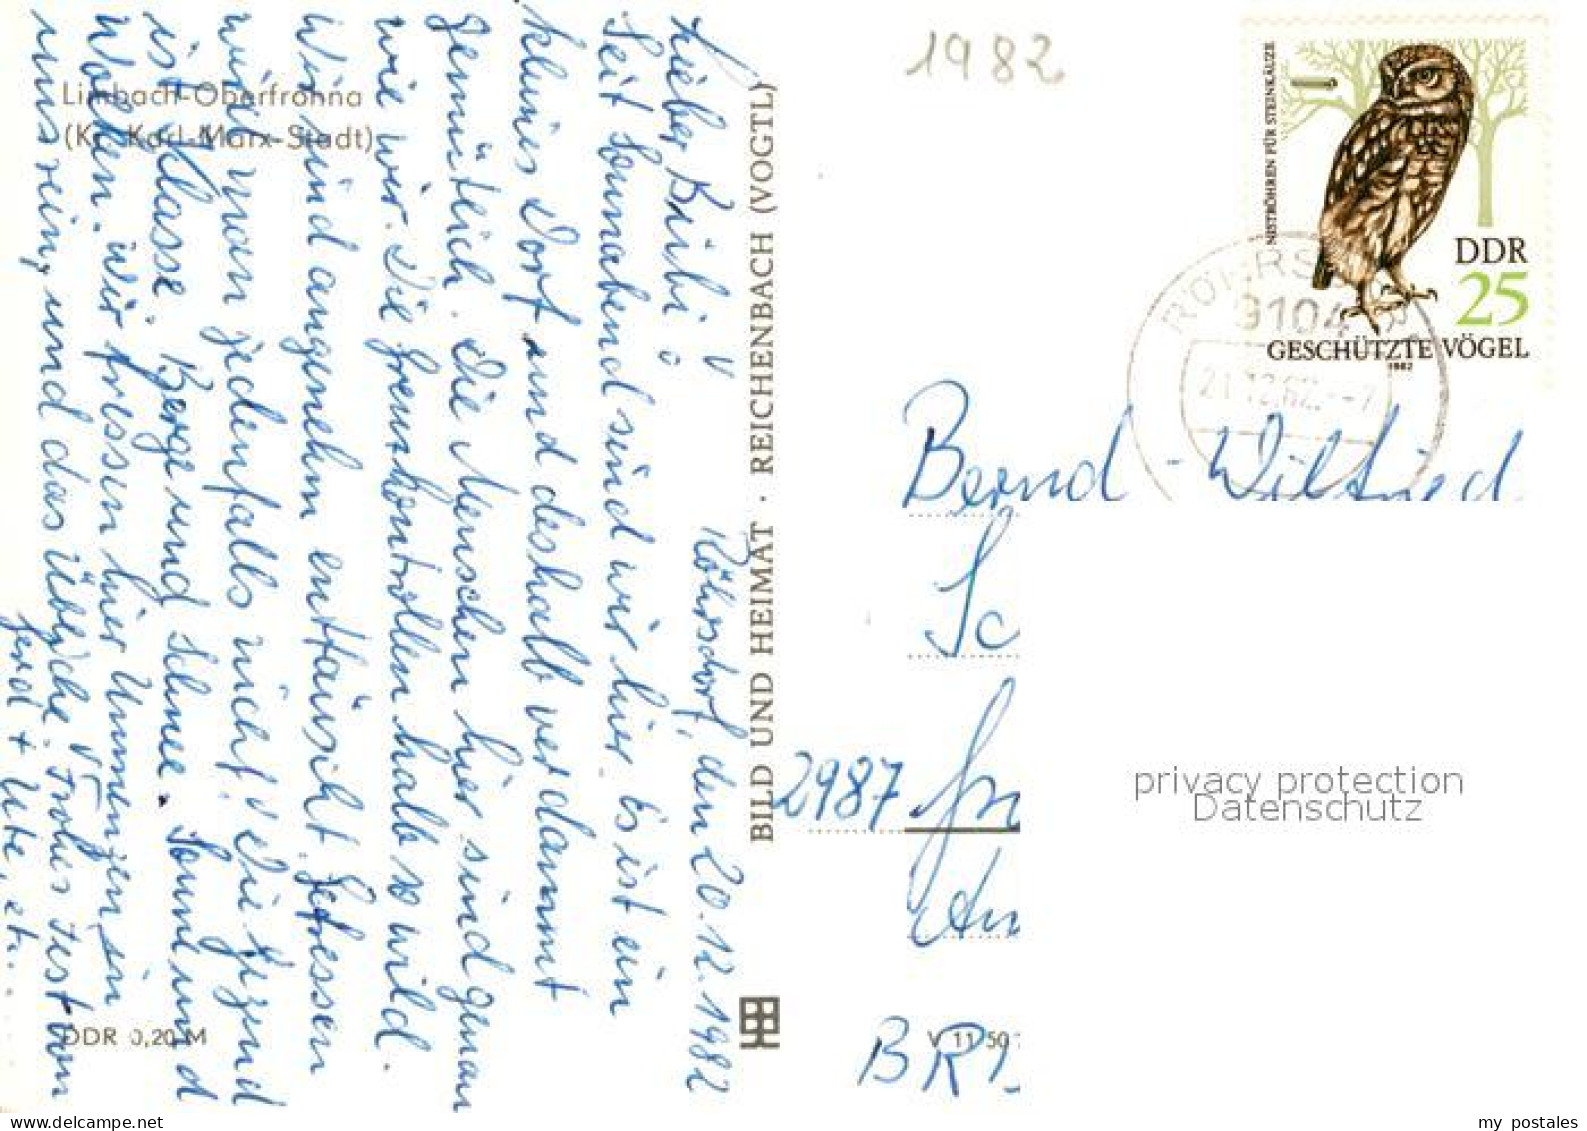 Limbach-Oberfrohna
(Kr. Karl-Marx-Stadt)
Röhrsdorf, den 20.12.1982
Lieber Brübi!
Seit Sonnabend sind wir hier. Es ist ein
kleines Dorf und deshalb verdammt
gemütlich. Die Menschen hier sind genau
wie wir. Die Grenzkontrollen halb so wild.
Wir sind angenehm enttäuscht. Gefressen
wird man jedenfalls nicht! Die Gegend
ist Klasse. Berge und Schnee. Sonne und
Wolken. Wir fressen hier Unmengen in
uns rein, und das Übliche: "Frohes Fest von
Gerd + Ute, etc...
DDR 0,20 M
BILD UND HEIMAT · REICHENBACH (VOGTL)
V 11 50
1982
NISTRÖHREN FÜR STEINKÄUZE
DDR
25
GESCHÜTZTE VÖGEL
1982
9104
Bernd-Wilfried
Sc
2987
BR
privacy protection
Datenschutz
my postales